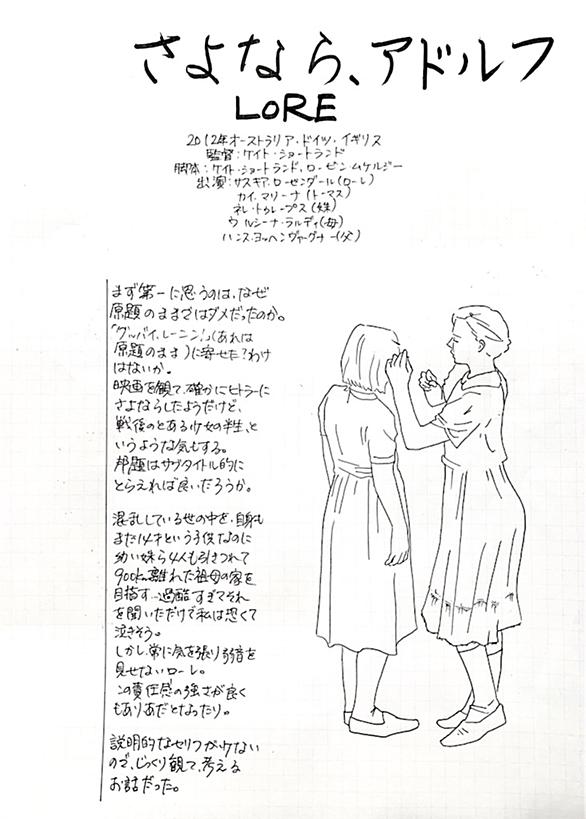 さよなら、アドルフ
LORE
2012年オーストラリア・ドイツ・イギリス
監督：ケイト・ショートランド
脚本：ケイト・ショートランド、ロービン・ムケルジー
出演：サスキア・ローゼンダール（ローレ）
カイ・マリーナ（トーマス）
ネレ・トゥレープス（妹）
ウルシーナ・ラルディ（母）
ハンス・ヨッヘンヴァーグナー（父）
まず第一に思うのは、なぜ
原題のままではダメだったのか。
「グッバイ、レーニン！」（あれは
原題のまま）に寄せた？わけ
はないか。
映画を観て、確かにヒトラーに
さよならしたようだけど、
戦後のとある少女の半生、と
いうような気もする。
邦題はサブタイトル的に
とらえれば良いだろうか。
混乱している世の中を、自身も
まだ14才という子供なのに
幼い妹ら4人も引きつれて
900km離れた祖母の家を
目指す…過酷すぎてそれ
を聞いただけで私は恐くて
泣きそう。
しかし、常に気を張り弱音を
見せないローレ。
この責任感の強さが良く
もありあだとなったり。
説明的なセリフが少ない
ので、じっくり観て、考える
お話だった。